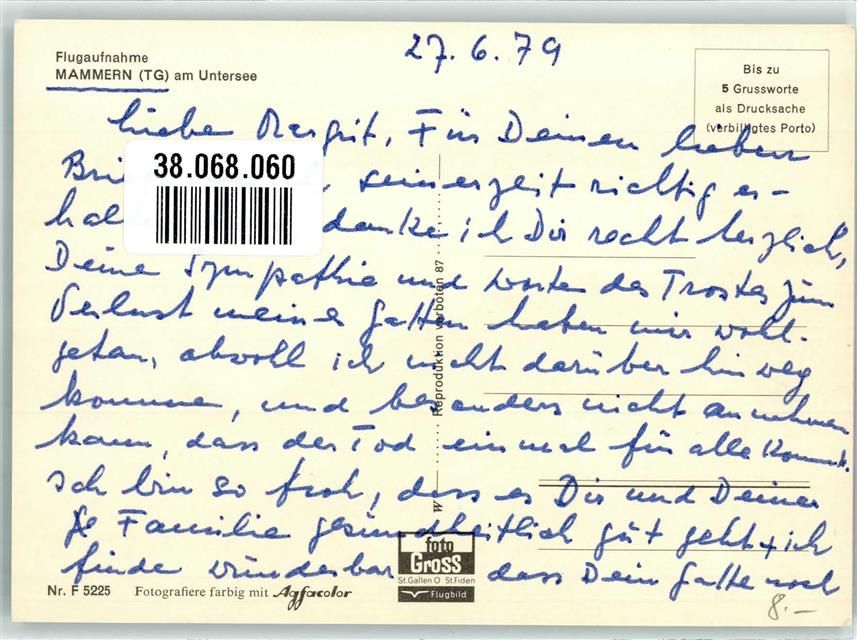 27.6.79
Flugaufnahme
MAMMERN (TG) am Untersee
Bis zu
5 Grussworte
als Drucksache
(verbilligtes Porto)
Liebe Margrit, Für Deinen lieben
38.068.060
seinerzeit richtig er-
danke ich Dir recht herzlich,
Deine Sympathie und Worten des Trostes zum
Verlust meines Gatten haben mir wohl-
getan, obwohl ich nicht darüber hinweg
komme, und besonders nicht annehmen
kann, dass der Tod einmal für alle kommt.
Ich bin so froh, dass es Dir und Deiner
Familie gesundheitlich gut geht + ich
finde wunderbar dass Dein Gatte noch
Reproduktion verboten 87
W
foto
Gross
St.Gallen O St.Fiden
Flugbild
Nr. F 5225 Fotografiere farbig mit Agfacolor
8.–